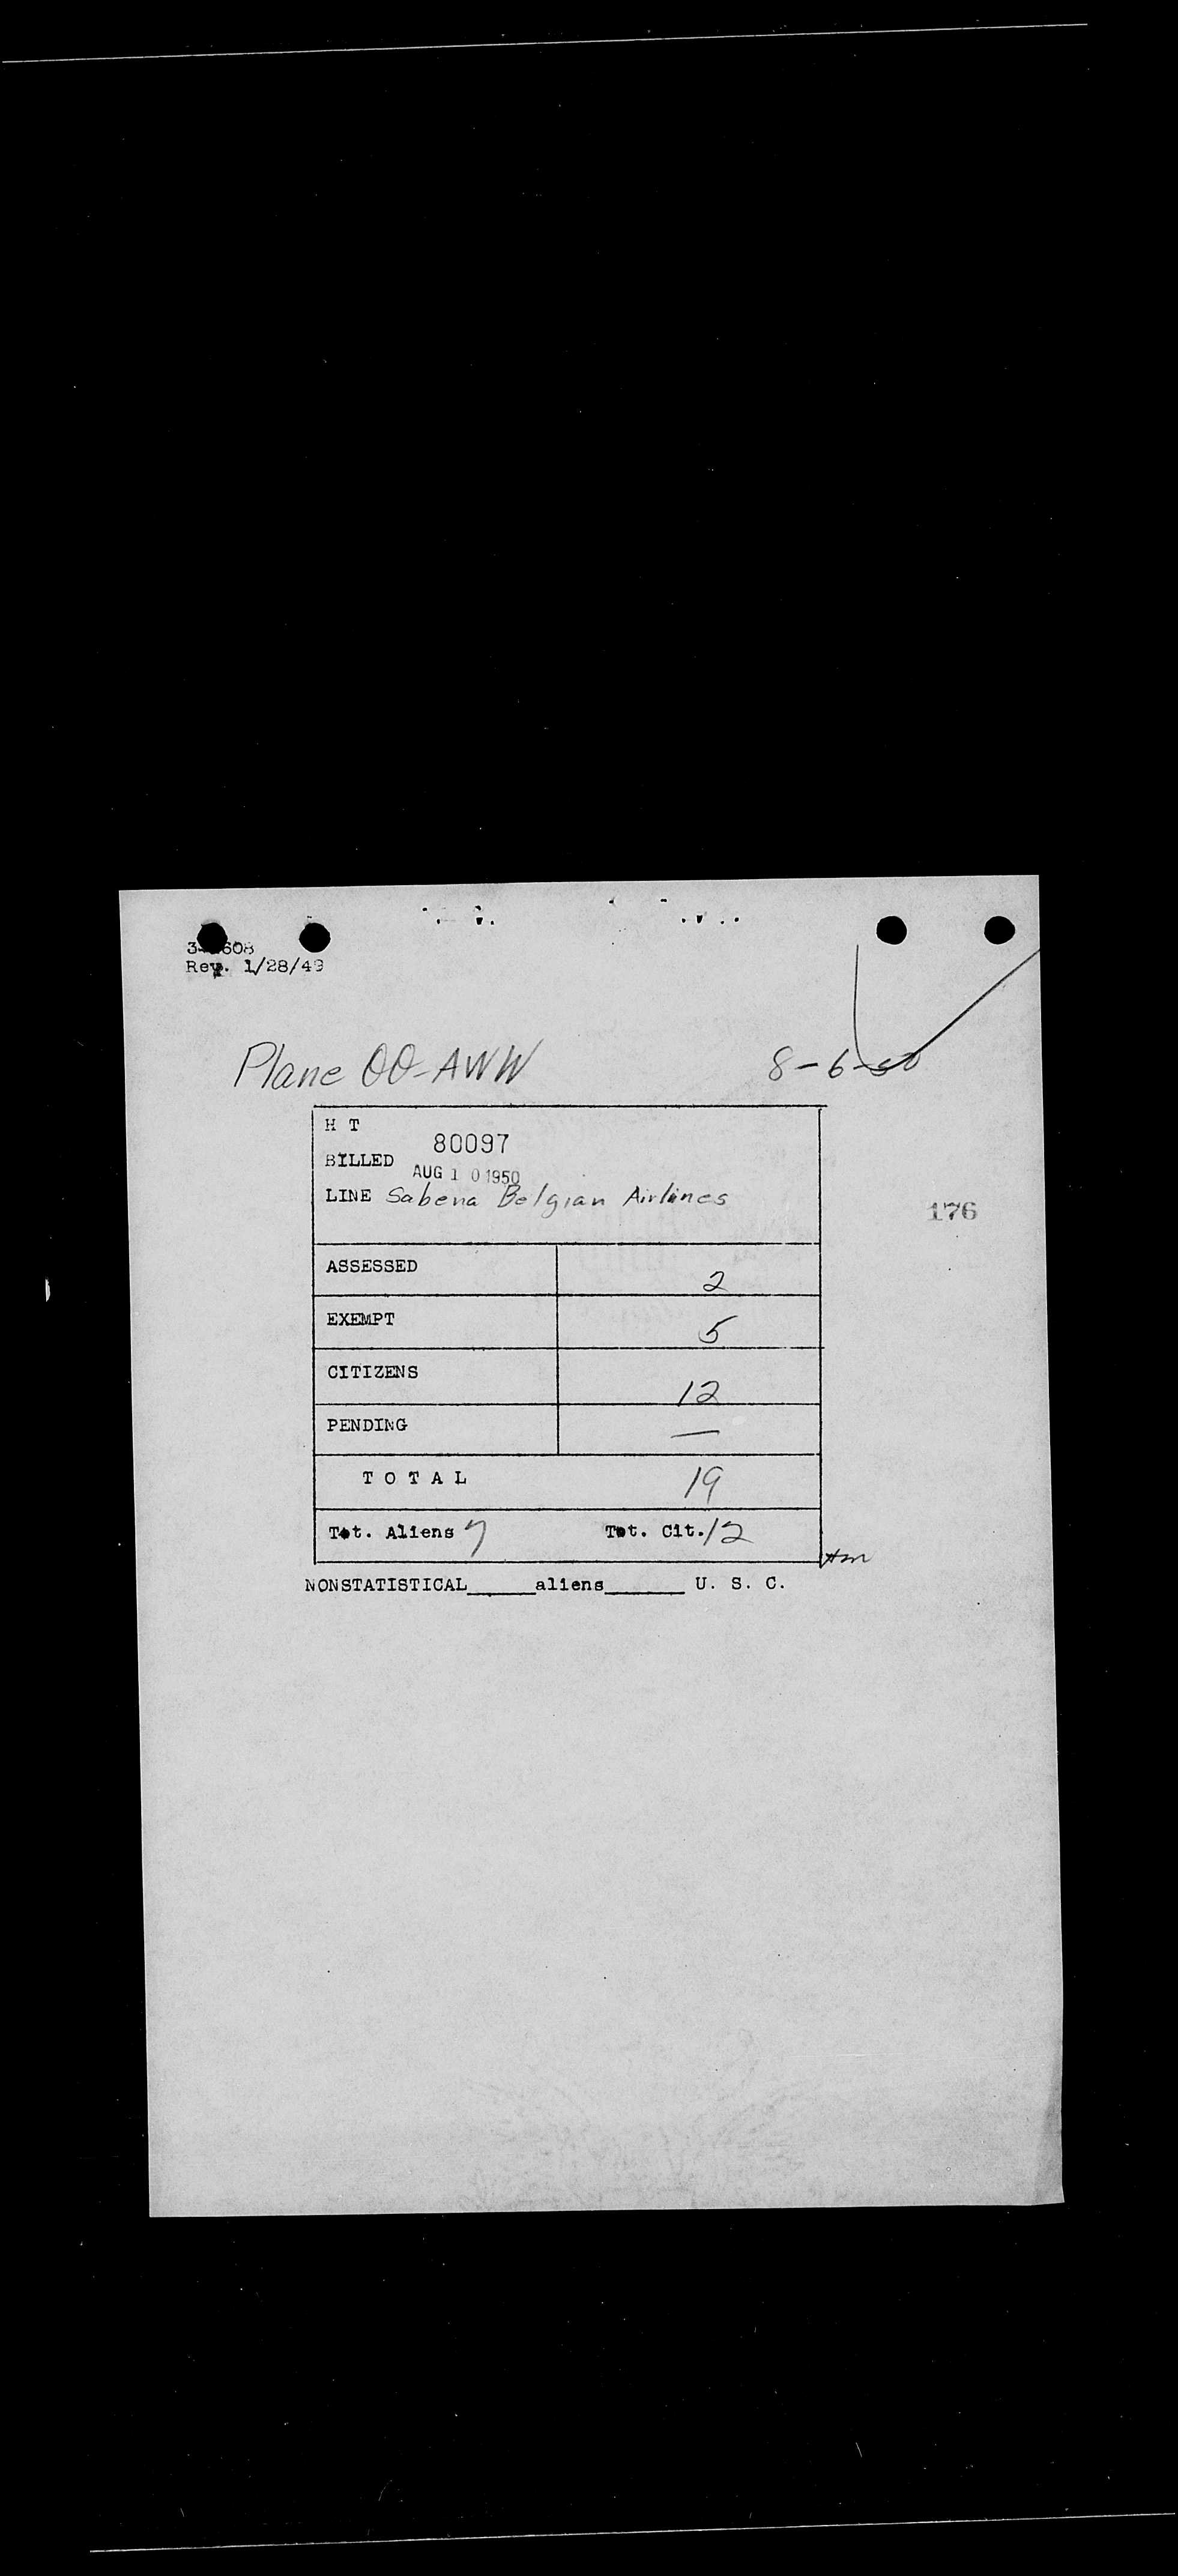 Rev. 1/28/49
Plane OO-AWW 8-6-50
H T
80097
BILLED
AUG 10 1950
LINE Sabena Belgian Airlines
176
ASSESSED 2
EXEMPT 5
CITIZENS 12
PENDING —
TOTAL 19
Tot. Aliens 7 Tot. Cit. 12
NONSTATISTICAL_____aliens______ U. S. C.